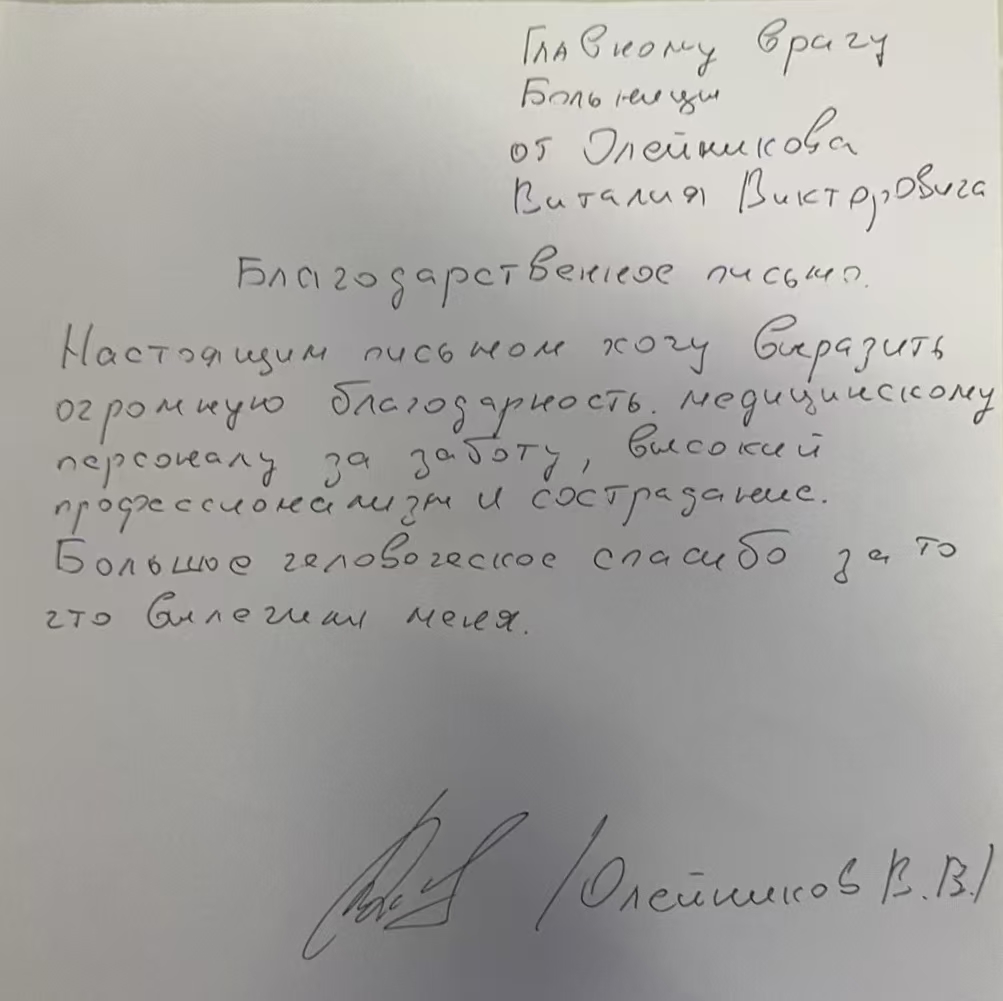 Главному врачу
Больницы
от Олейникова
Виталия Викторовича
Благодарственное письмо.
Настоящим письмом хочу выразить
огромную благодарность. медицинскому
персоналу за заботу, высокий
профессионализм и сострадание.
Большое человеческое спасибо за то
что вылечили меня.
/Олейников В.В./